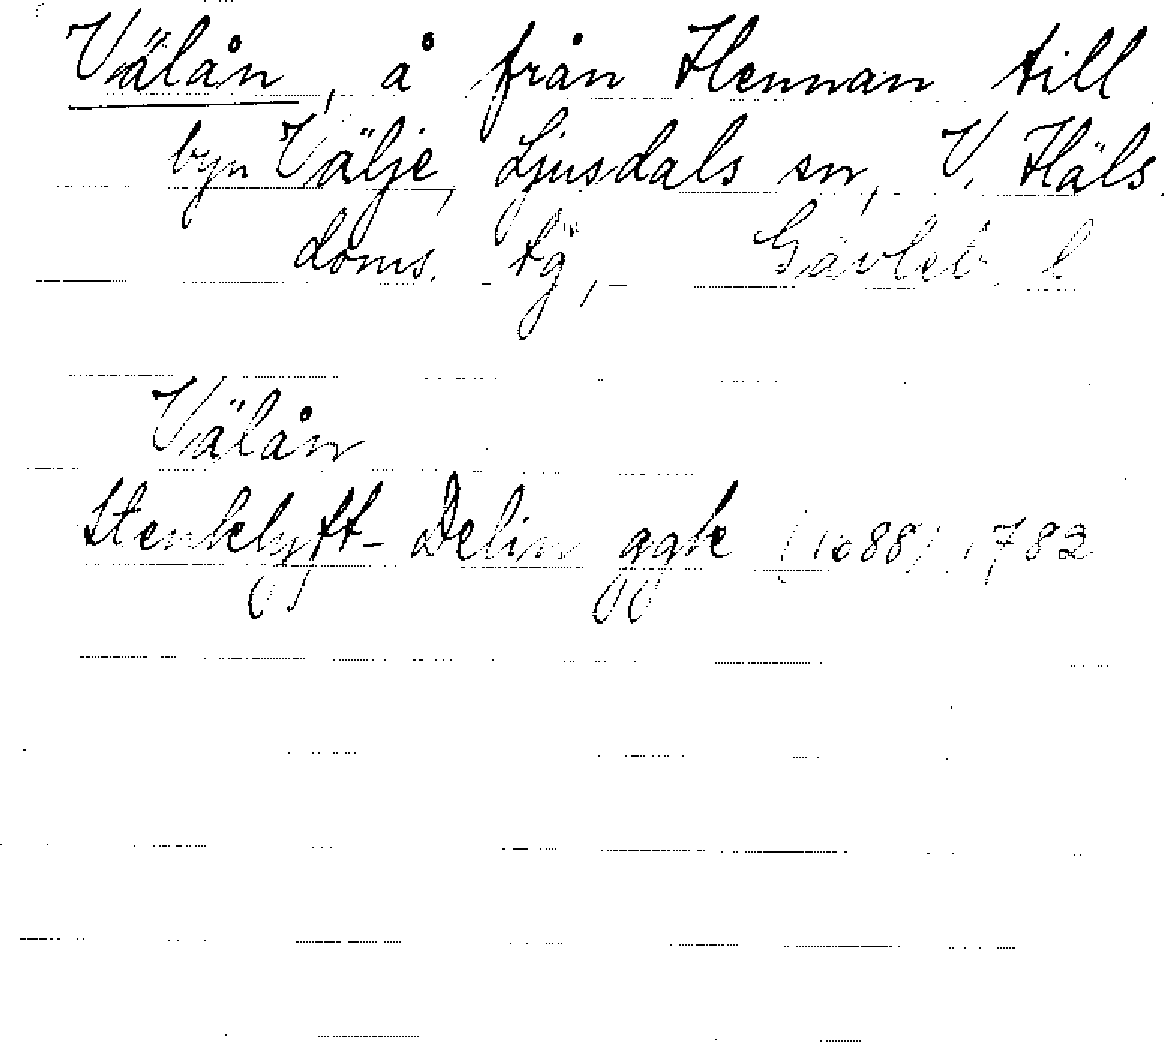 Välån, å från Hennan till
byn Välje, Ljusdals sn, V. Häls.
doms. tg, Gävleb. l
Välån
Stenklyft-Delin ggk (1688) 1782